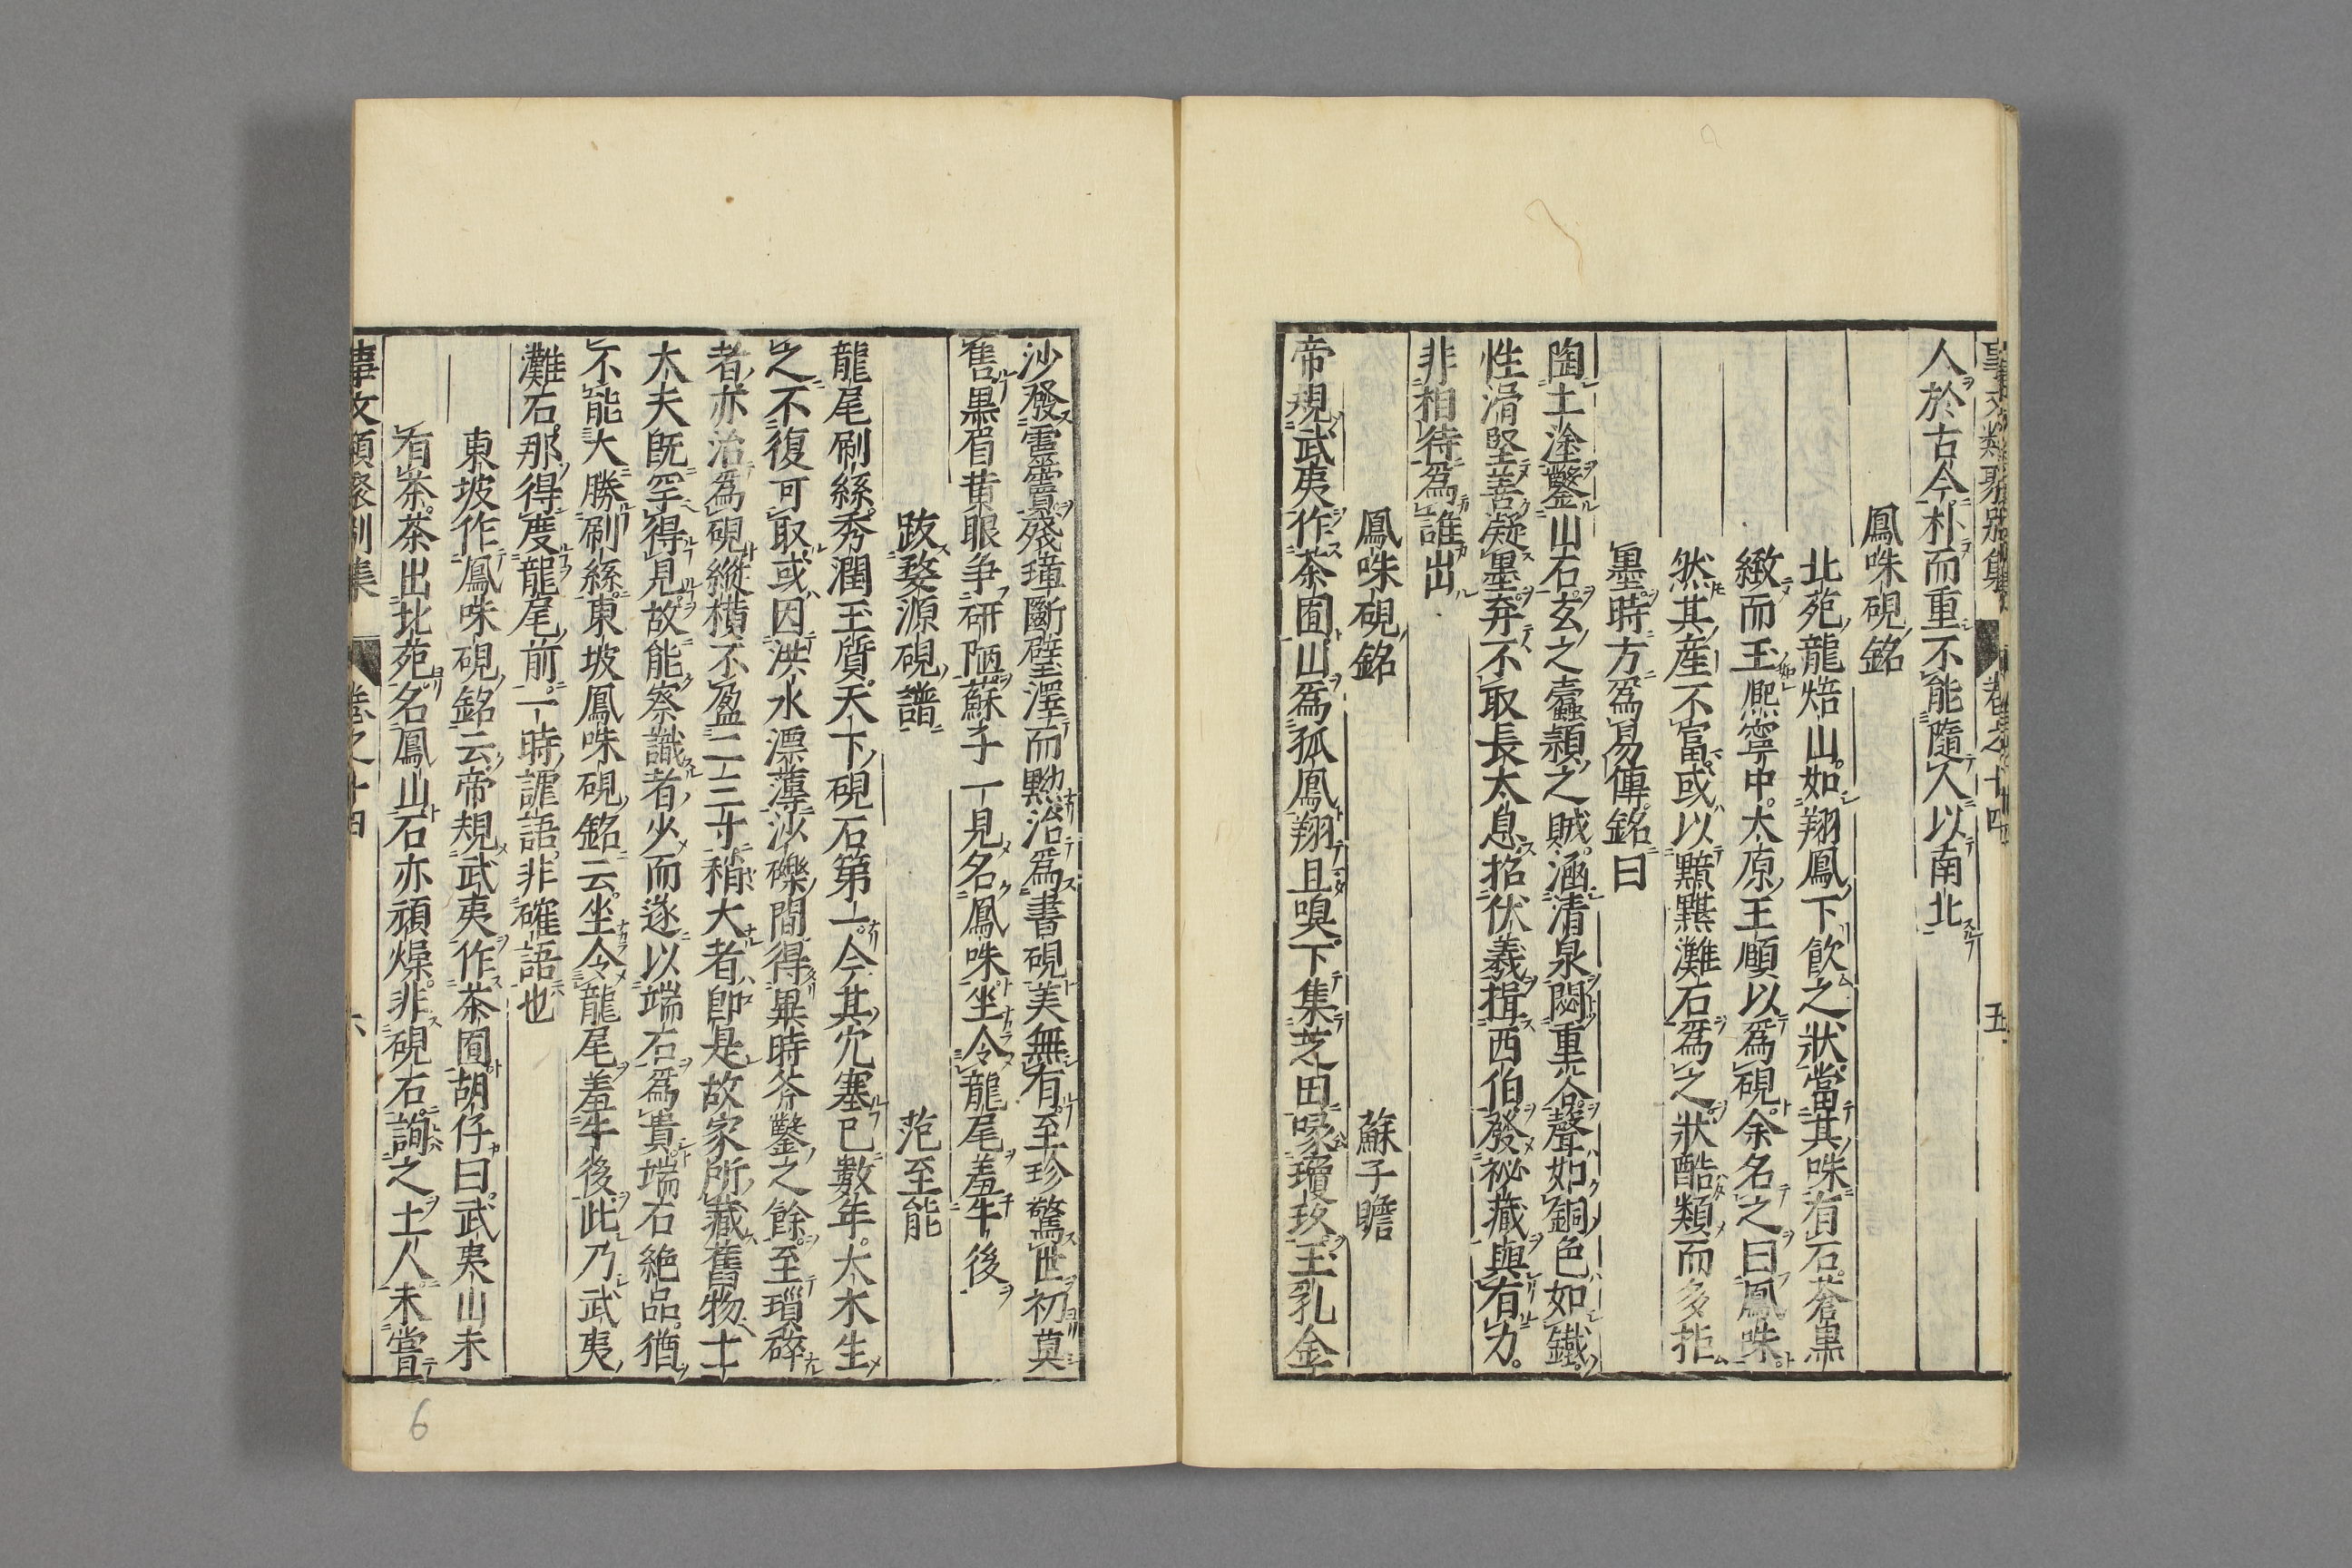 事文類聚別集 卷之十四 五
人於古今朴而重不能隨人以南北
鳳咮硯銘
北苑龍焙山如翔鳳下飲之狀當其咮有石蒼黒
緻而玉熈寧中太原王頤以爲硯余名之曰鳳咮
然其産不富或以黯黮灘石爲之狀酷類而多拒
墨時方爲易傳銘曰
陶土塗鑿山石玄之蠹頴之賊涵清泉閟重谷聲如銅色如鐵
性滑堅善凝墨弃不取長太息招伏羲揖西伯發祕藏與有力
非相待爲誰出
鳳咮硯銘 蘇子瞻
帝規武夷作茶囿山爲孤鳳翔且嗅下集芝田啄瓊玖玉乳金
沙發靈竇殘璋斷璧澤而黝治爲書硯美無有至珍驚世初莫
售黒眉黄眼争研陋蘇子一見名鳳咮坐令龍尾羞牛後
跋婺源硯譜 范至能
龍尾刷絲秀潤玉質天下硯石第一今其穴塞已數年大木生
之不復可取或因洪水漂薄沙礫間得異時斧鑿之餘至瑣碎
者亦治爲硯縱横不盈二三寸稍大者即是故家所藏舊物士
大夫旣罕得見故能察識者少而遂以端石爲貴端石絶品猶
不能大勝刷絲東坡鳳咮硯銘云坐令龍尾羞牛後此乃武夷
灘石那得度龍尾前一時謔語非確語也
東坡作鳳咮硯銘云帝規武夷作茶囿胡仔曰武夷山未
有茶茶出北苑名鳳山石亦頑燥非硯石詢之土人未嘗
事文類聚別集 卷之十四 六
6